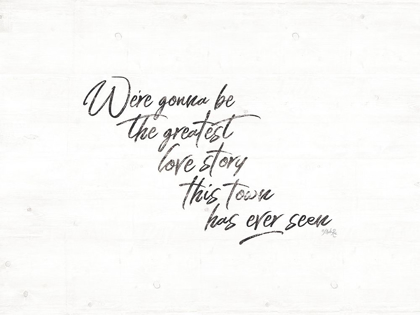 We're gonna be
the greatest
love story
this town
has ever seen